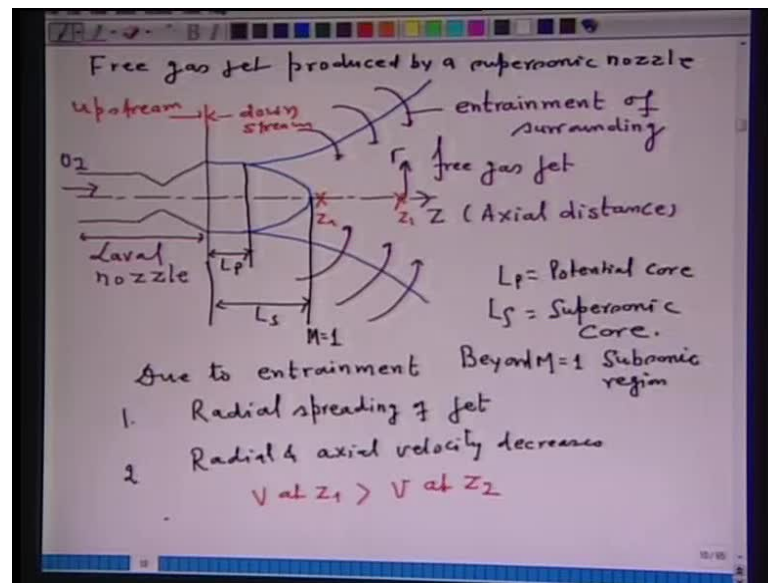 Free gas jet produced by a supersonic nozzle
upstream
down
stream
entrainment of
surrounding
O2
r
free gas jet
Z2
Z1
Z (Axial distance)
Laval
nozzle
Lp
Ls
M=1
Lp = Potential core
Ls = Supersonic
core.
Due to entrainment
Beyond M=1 Subsonic
region
1. Radial spreading of jet
2 Radial & axial velocity decreases
V at Z1 > V at Z2